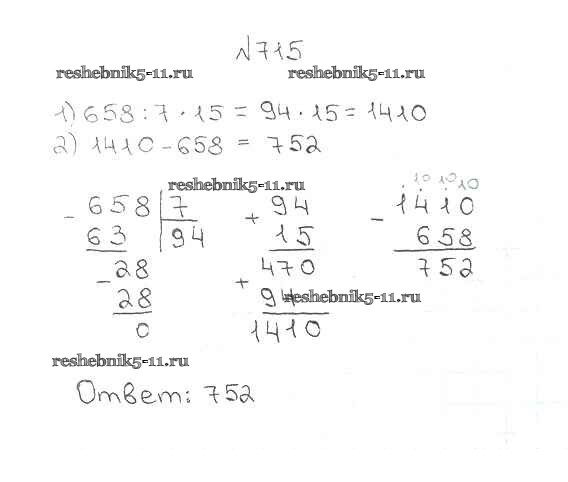 №715
reshebnik5-11.ru reshebnik5-11.ru
1) 658 : 7 · 15 = 94 · 15 = 1410
2) 1410 - 658 = 752
reshebnik5-11.ru
10 10 10
- 658 7 + 94 - 1410
63 94 15 658
- 28 470 752
28 + 94 reshebnik5-11.ru
0 1410
reshebnik5-11.ru
Ответ: 752